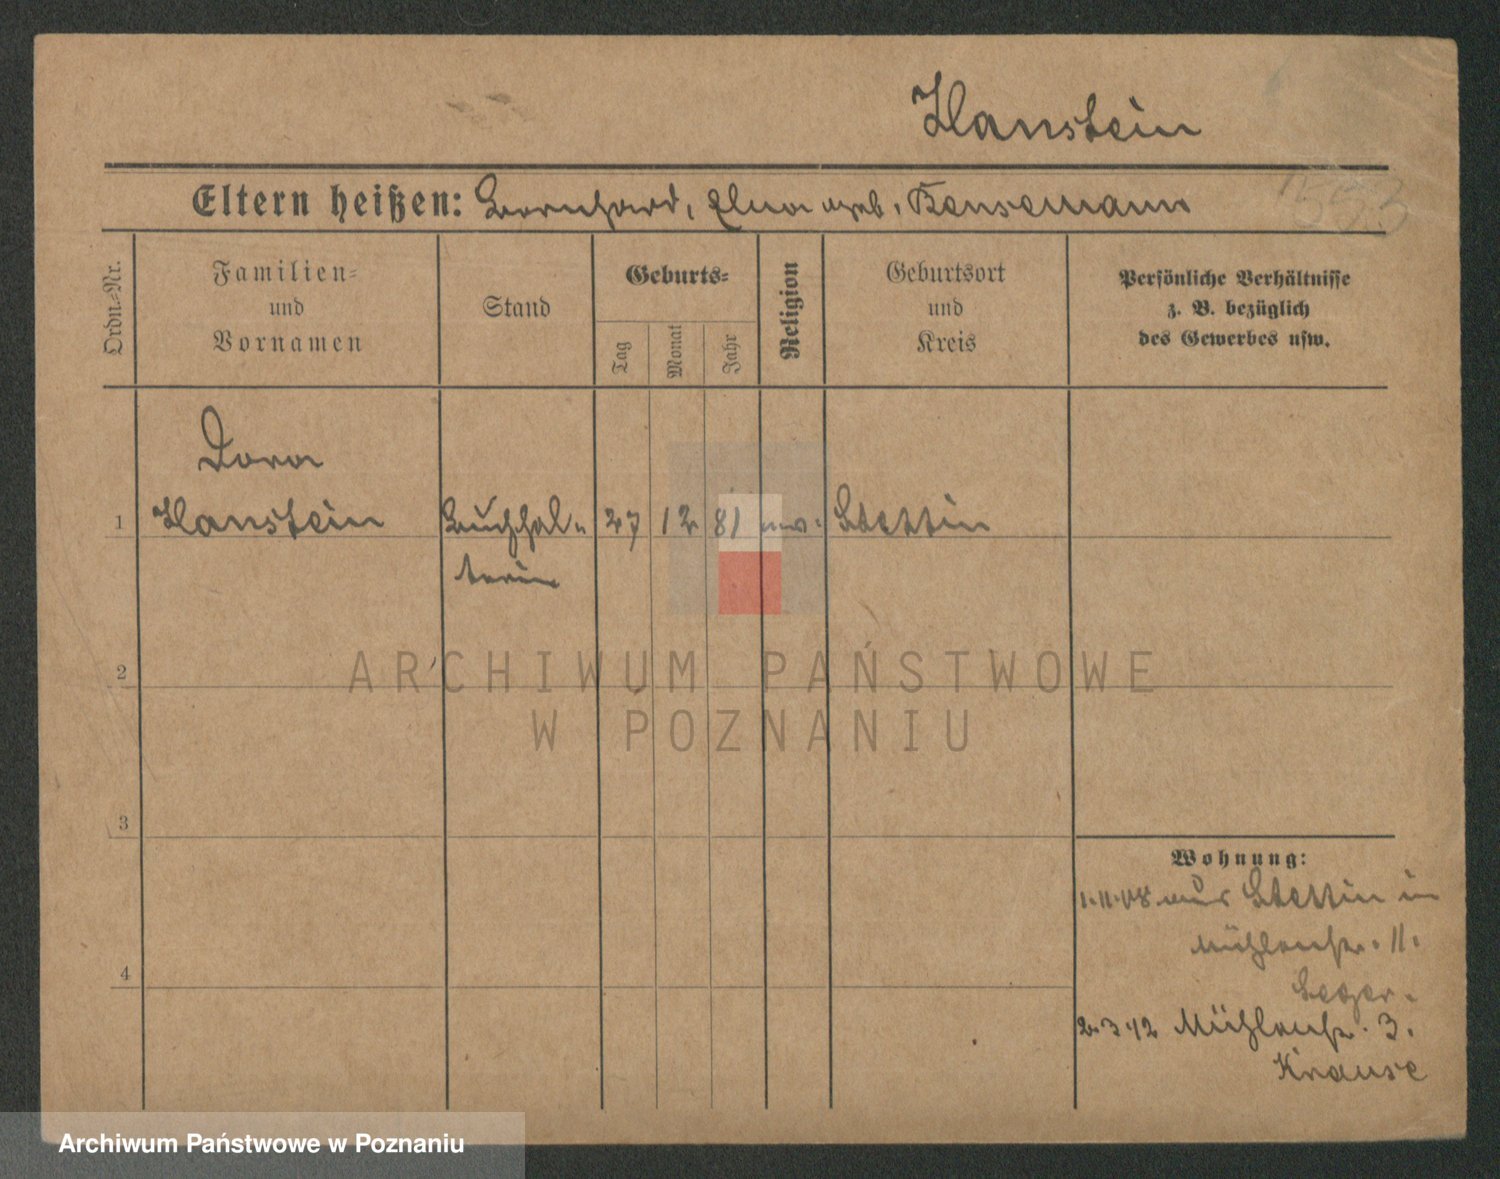 Hanstein
Eltern heißen: Bernhard, geb. Hansemann
1553
Ordn.=Nr.
Familien=
und
Vornamen
Stand
Geburts=
Tag
Monat
Jahr
Religion
Geburtsort
und
Kreis
Persönliche Verhältnisse
z. B. bezüglich
des Gewerbes usw.
Dora
1 Hanstein Buchhal= 27 12 81 Stettin
terin
2
ARCHIWUM PAŃSTWOWE
W POZNANIU
3
Wohnung:
1.11.08 aus Stettin in
Mühlenstr. 11.
4
2.3.12 Mühlenstr. 3.
Krause
Archiwum Państwowe w Poznaniu